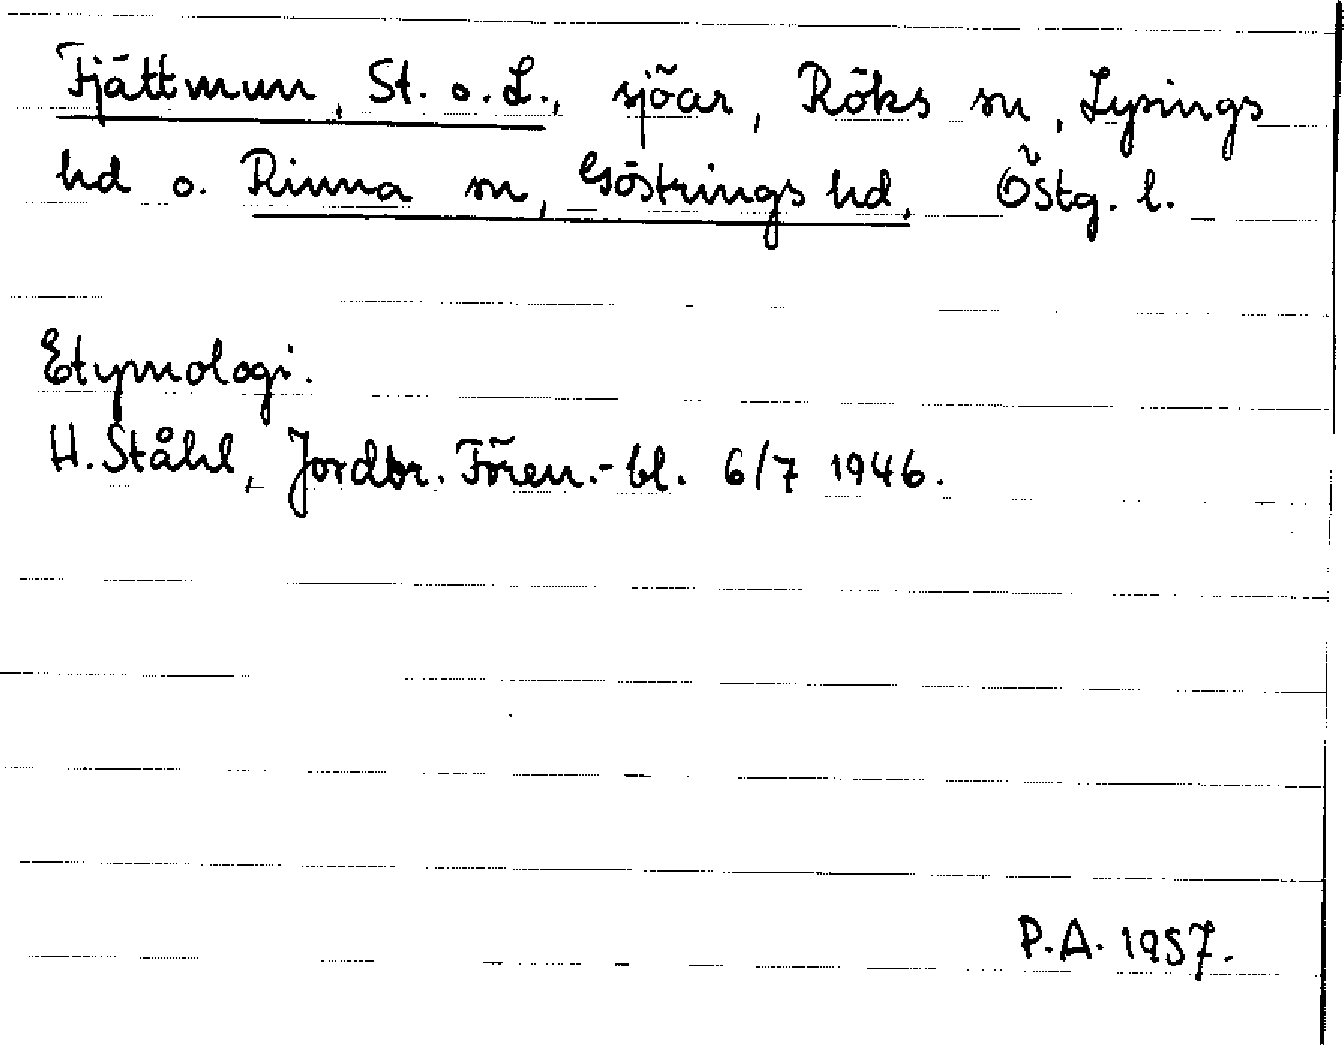 Fjättmun, St. o. L., sjöar, Röks sn, Lysings
hd o. Rinna sn, Göstrings hd, Östg. l.
Etymologi.
H. Ståhl, Jordbr. Fören.-bl. 6/7 1946.
P.A. 1957.